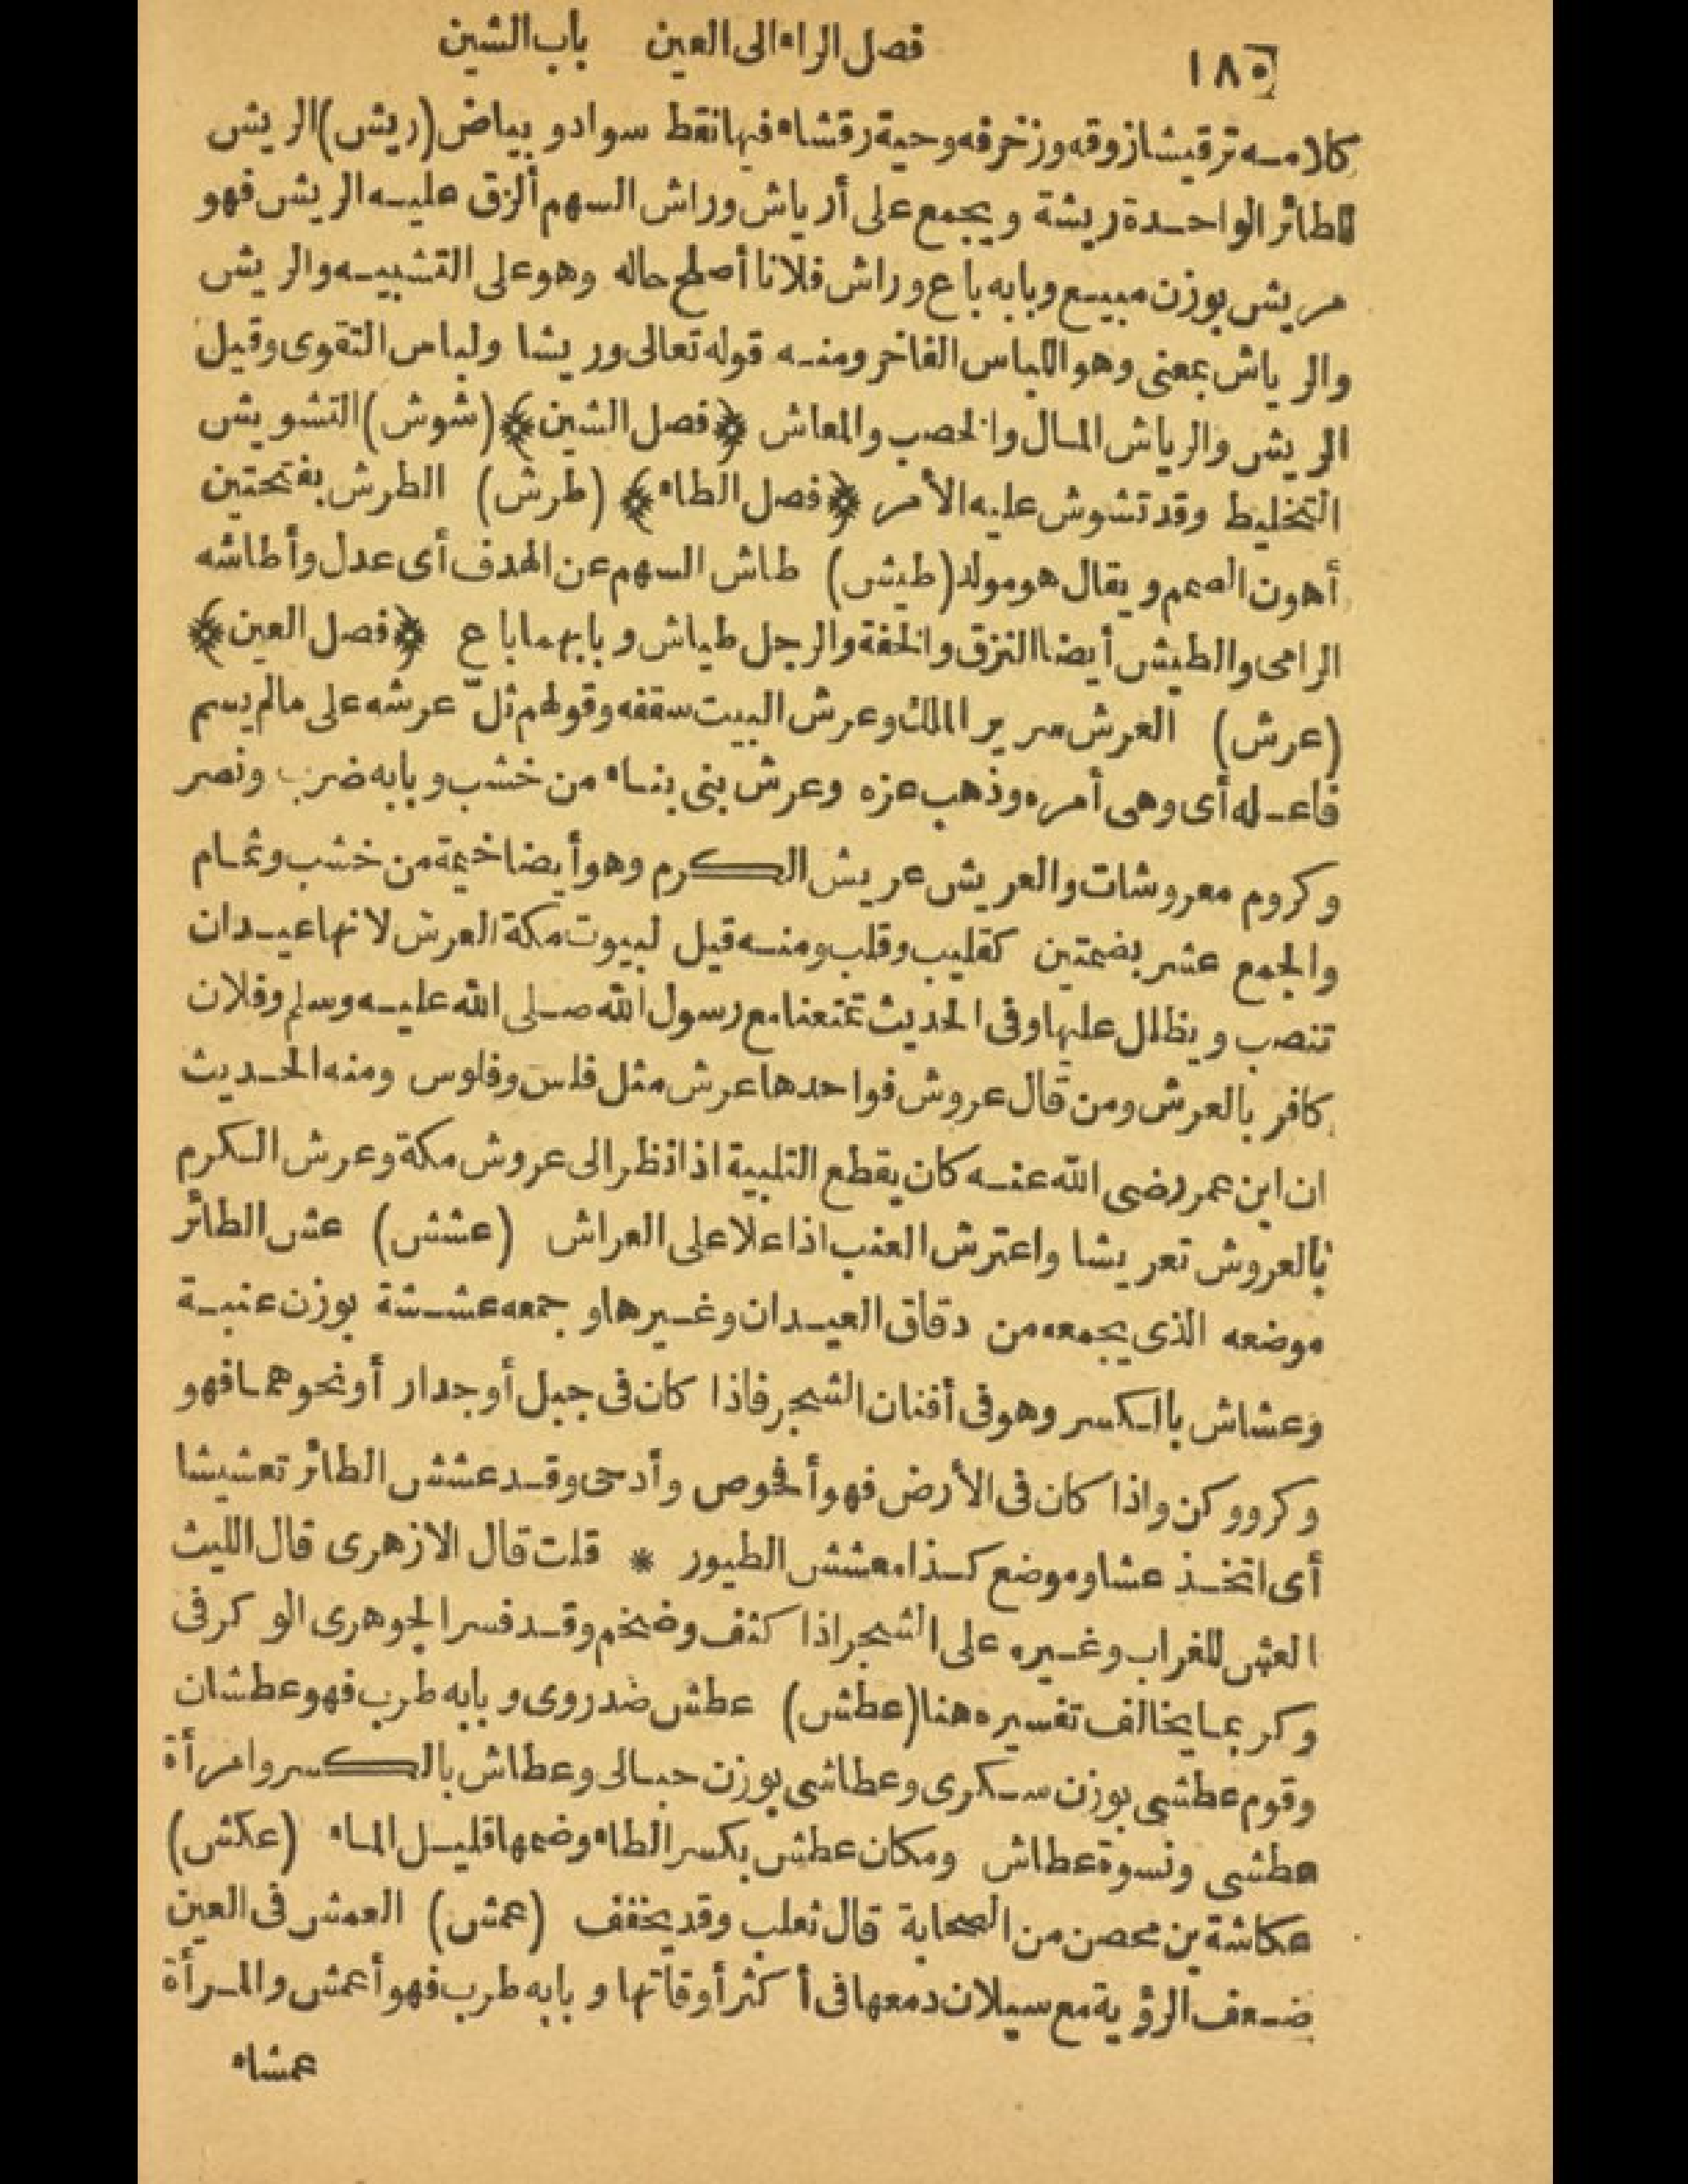 ١٨٠ فصل الراء الى العين باب الشين
كلامه ترقيشا زوقه وزخرفه وحية رقشاء فيها نقط سواد و بياض (ريش) الريش
للطائر الواحدة ريشة ويجمع على أرياش وراش السهم ألزق عليه الريش فهو
مريش بوزن مبيع وبابه باع وراش فلانا أصلح حاله وهو على التشبيه والريش
والرياش بمعنى وهو اللباس الفاخر ومنه قوله تعالى وريشا ولباس التقوى وقيل
الريش والرياش المال والخصب والمعاش ﴿فصل الشين﴾ (شوش) التشويش
التخليط وقد تشوش عليه الأمر ﴿فصل الطاء﴾ (طرش) الطرش بفتحتين
أهون الصمم ويقال هو مولد (طيش) طاش السهم عن الهدف أى عدل وأطاشه
الرامى والطيش أيضا النزق والخفة والرجل طياش وبابهما باع ﴿فصل العين﴾
(عرش) العرش سرير الملك وعرش البيت سقفه وقولهم ثلّ عرشه على مالم يسم
فاعله أى وهى أمره وذهب عزه وعرش بنى بناء من خشب وبابه ضرب ونصر
وكروم معروشات والعريش عريش الكرم وهو أيضا خيمة من خشب وثمام
والجمع عشر بضمتين كقليب وقلب ومنه قيل لبيوت مكة العرش لانها عيدان
تنصب ويظلل عليها وفى الحديث تمتعنا مع رسول الله صلى الله عليه وسلم وفلان
كافر بالعرش ومن قال عروش فواحدها عرش مثل فلس وفلوس ومنه الحديث
ان ابن عمر رضى الله عنه كان يقطع التلبية اذا نظر الى عروش مكة وعرش الكرم
بالعروش تعريشا واعترش العنب اذا علا على العراش (عشش) عش الطائر
موضعه الذى يجمعه من دقاق العيدان وغيرها وجمعه عششة بوزن عنبة
وعشاش بالكسر وهو فى أفنان الشجر فاذا كان فى جبل أو جدار أو نحوهما فهو
وكر ووكن واذا كان فى الأرض فهو أفحوص وأدحى وقد عشش الطائر تعشيشا
أى اتخذ عشا وموضع كذا معشش الطيور * قلت قال الازهرى قال الليث
العش للغراب وغيره على الشجر اذا كثف وضخم وقد فسر الجوهرى الوكر فى
وكر بما يخالف تفسيره هنا (عطش) عطش ضد روى وبابه طرب فهو عطشان
وقوم عطشى بوزن سكرى وعطاشى بوزن حبالى وعطاش بالكسر وامرأة
عطشى ونسوة عطاش ومكان عطش بكسر الطاء وضمها قليل الماء (عكش)
عكاشة بن محصن من الصحابة قال ثعلب وقد يخفف (عمش) العمش فى العين
ضعف الرؤية مع سيلان دمعها فى أكثر أوقاتها وبابه طرب فهو أعمش والمرأة
عمشاء